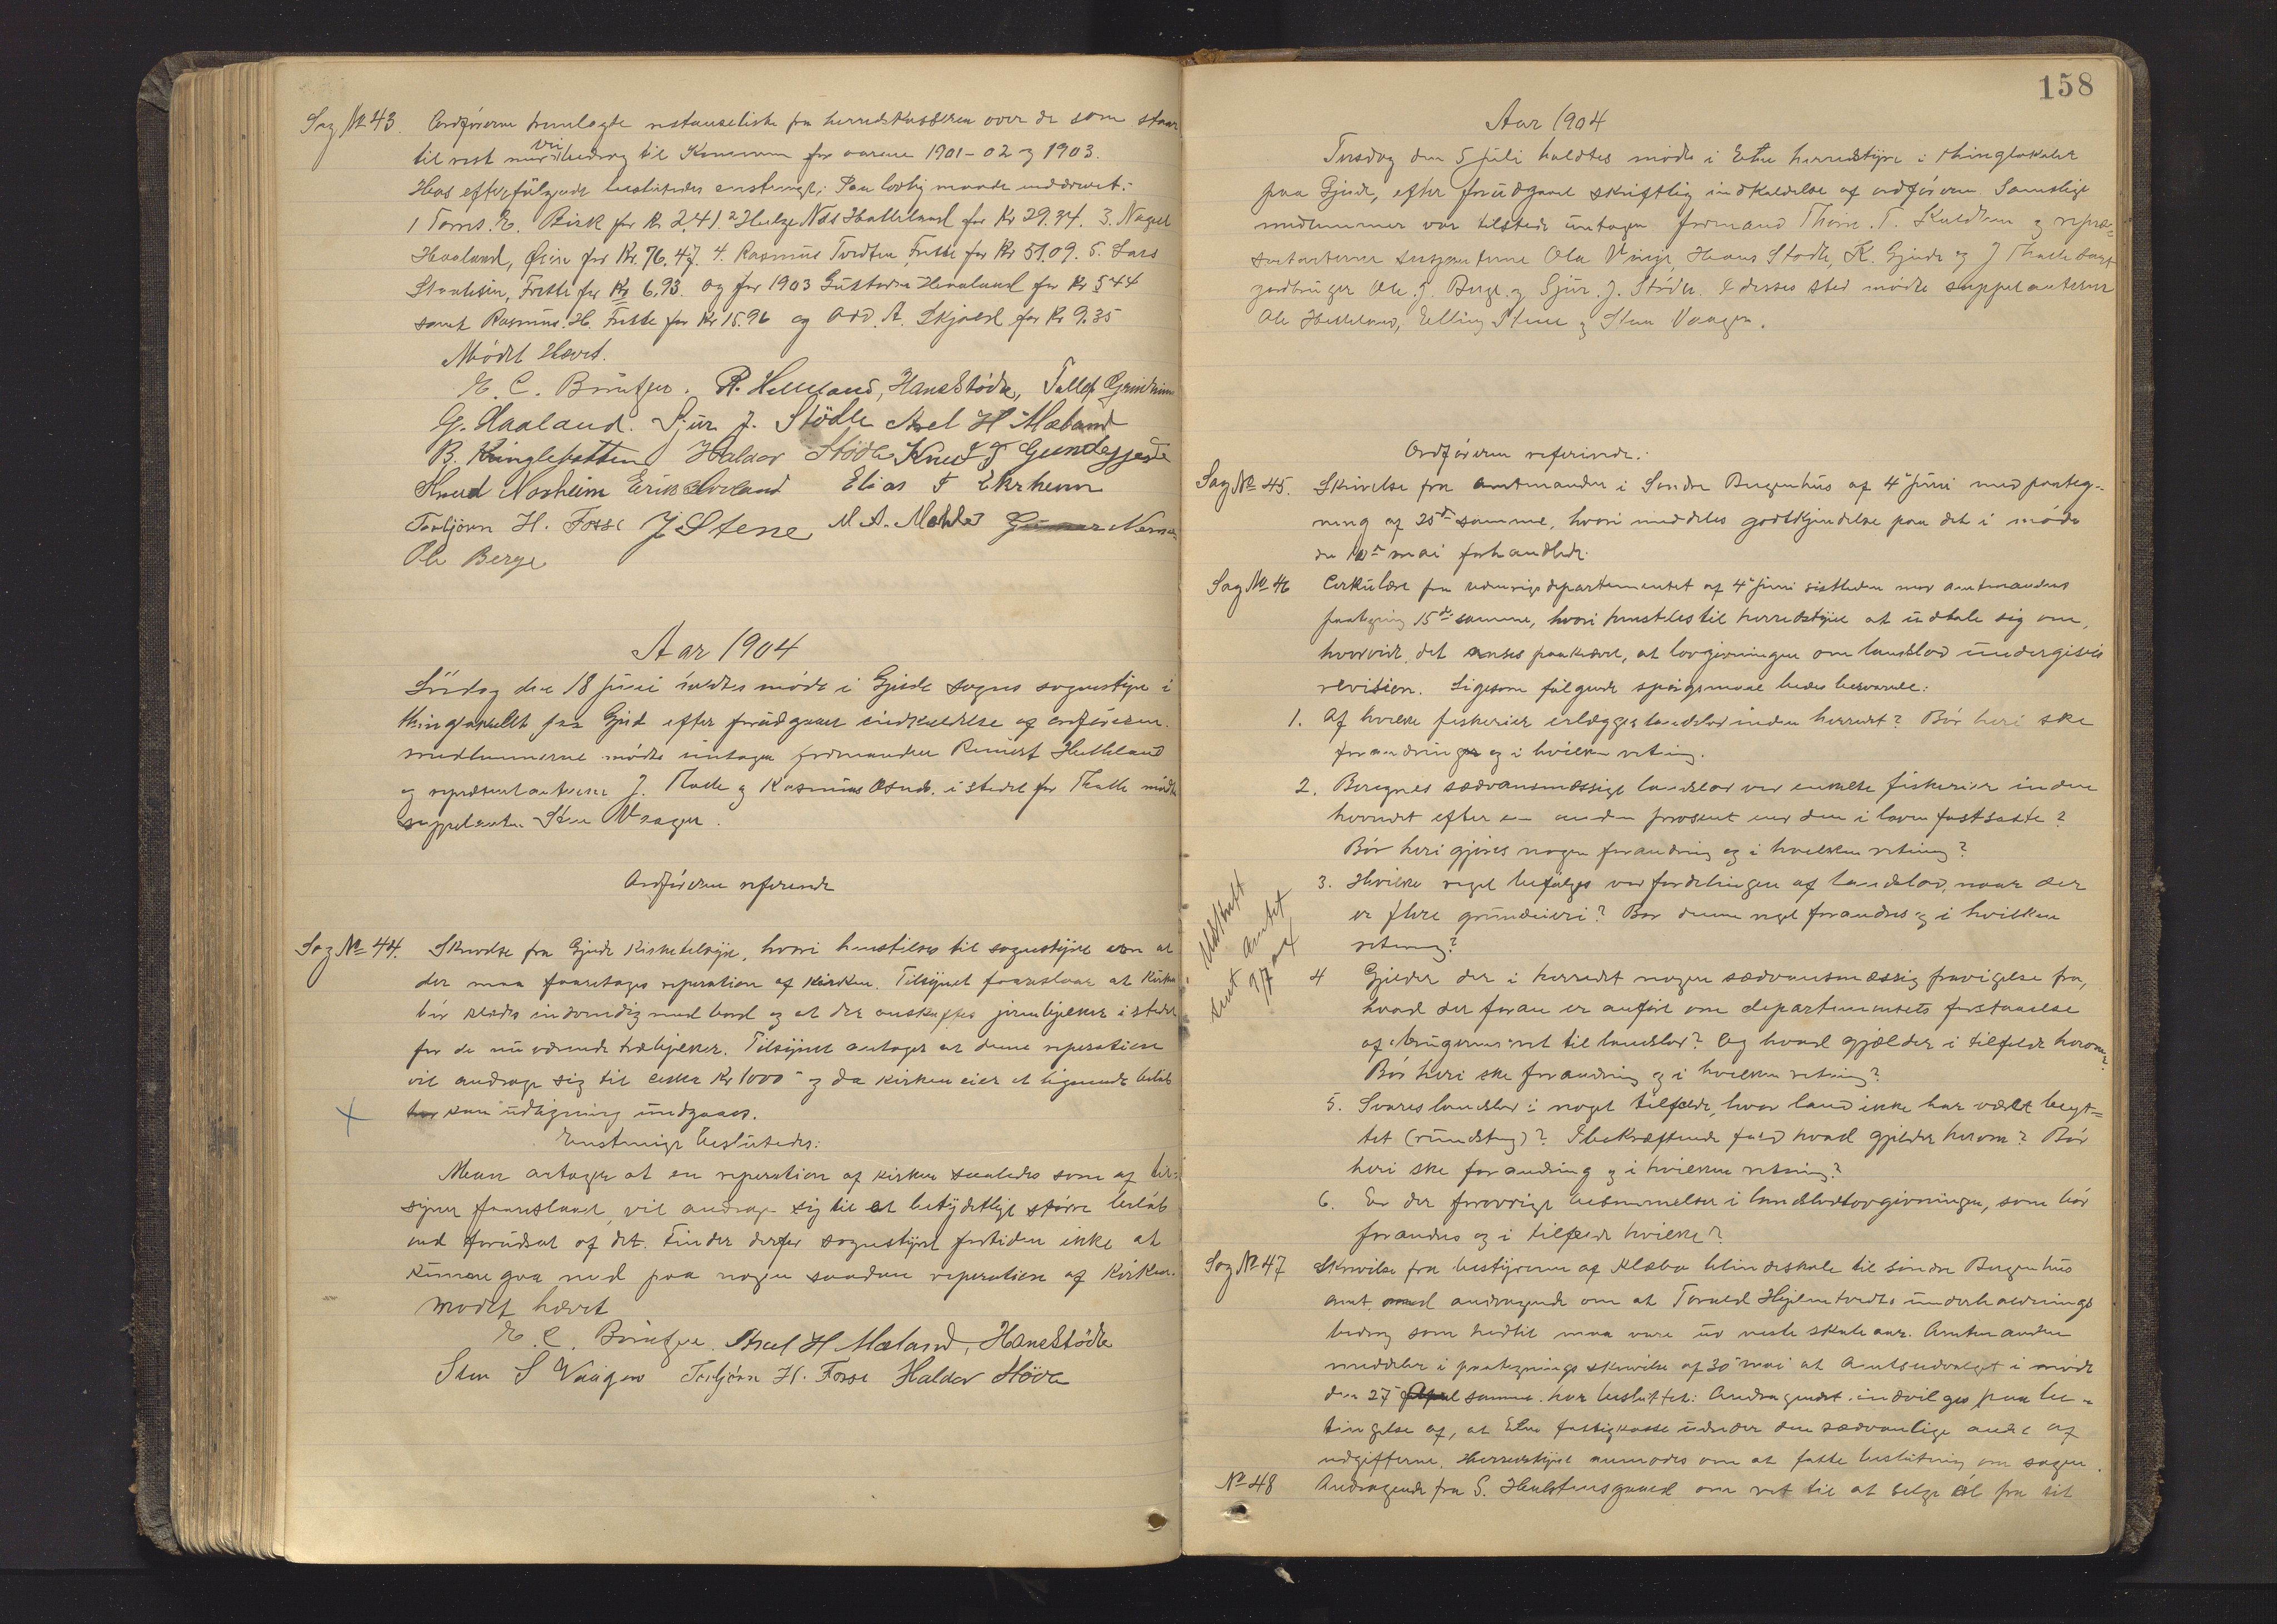 Sag № 43. Ordføreren fremlagte restanseliste fra herredskasseren over de som staar
til rest med veibidrag til Kommunen for aarene 1901-02 og 1903.
Hos efterfølgende besluttedes enstemmigt: Paa lovlig maade inddrevet:
1 Torres. E. Birk for Kr 2,41. 2 Helge Nils Hatteland for Kr 29.34. 3. Nagel
Haaland, Øien for Kr. 76.47. 4. Rasmus Tvedten Frette for Kr 51.09. 5. Lars
Frette for Kr 6,93. og for 1903 Haaland for Kr 5 44
samt Rasmus. H. Frette for Kr 15.96 og Odd. A. Skjold for Kr 9.35
Mødet Hævet.
E. C. Bruntzen. R. Helleland, Hans Stødle, Tallef Grindheim
G. Haaland. Sjur J. Stødle Axel H Mæland
B. Kringlebotten Haldor Stødle Knut T Gundegjerde
Knud Norheim Erik Elias T Ekrheim
Torbjørn H. Fosse J Stene M. A. Mehle
Ole Berge
Aar 1904
Lørdag den 18 juni holdtes møde i Gjerde sogns sognestyre i
thinglokalet paa Gjerde efter forudgaaet indkaldelse af ordføreren.
medlemmerne mødte untagen formanden Reinert Helleland
og representanterne J. Thalle og Rasmus i stedet for Thalle mødte
suppleanten Sten Vaagen.
Ordføreren refererede
Sag № 44. Skrivelse fra Gjerde Kirketilsyn, hvori henstilles til sognestyret om at
der maa foaretages reperation af Kirken. Tilsynet foareslaar at Kirken
bør klædes indvendig med bord og at der anskaffes jernbjelker i stedet
for de nu værende træbjelker. Tilsynet antager at denne reperation
vil andrage sig til cirka Kr 1000 og da kirken eier et lignende beløb
kan udligning undgaaes.
Enstemmigt besluttedes:
Man antager at en reperation af kirken saaledes som af til-
synet foareslaaet, vil andrage sig til et betydeligt større beløb
end forudsat af det. Finder derfor sognestyret fortiden ikke at
kunne gaa med paa nogen saadan reperation af Kirken.
Mødet hævet
E. C. Bruntzen. Axel H Mæland, Hans Stødle
Sten S Vaagen Torbjørn H. Fosse Haldor Støle
158
Aar 1904
Tirsdag den 5 juli holdtes møde i Etne herredstyre i thinglokalet
paa Gjerde, efter forudgaaet skriftlig indkaldelse af ordføreren. Samtlige
medlemmer var tilstede untagen formand Thore. T. Kaldheim og repræ=
sentanterne Ola Vinje, Hans Stødle, K. Gjerde og J Thalle samt
gardbruger Ole. J. Berge. og Sjur. J. Stødle. I desses sted mødte suppleanterne
Ole Helleland, Elling Stene og Sten Vaagen.
Ordføreren refererede:
Sag № 45. Skrivelse fra amtmanden i Søndre Bergenhus af 4de juni med paateg-
ning af 25de samme, hvori meddeles godkjendelse paa det i møde
den 10de mai forhandlede.
Sag № 46 Cirkulære fra departementet af 4de juni sistleden med amtmandens
paategning 15de samme, hvori henstilles til herredstyret at udtale sig om,
hvorvidt det anses paakrævet, at lovgivningen om landslod undergives
revision. Ligesom følgende spørgsmaal bedes besvarede:
1. Af hvilke fiskerier erlægges landslod inden herredet? Bør heri ske
forandringer og i hvilken retning.
2. Beregnes sædvansmæssige landslod ved enkelte fiskerier inden
herredet efter en anden prosent end den i loven fastsatte?
Bør heri gjøres nogen forandring og i hvilken retning?
3. Hvilke regel befølges ved fordelingen af landslod, naar der
er flere grundeiere? Bør denne regel forandres og i hvilken
retning?
Udskrift
sent amtet
7/7 04
4 Gjelder der i herredet nogen sædvansmæssig fravigelse fra,
hvad der foran er anført om departementets forstaaelse
af brugerens ret til landslod? Og hvad gjælder i tilfelde herom?
Bør heri ske forandring og i hvilken retning?
5. Svares landslod i noget tilfelde, hvor land ikke har været benyt=
tet (rundsteng)? I bekræftende fald hvad gjelder herom? Bør
heri ske forandring og i hvilken retning?
6. Er der forøvrigt bestemmelser i landslodlovgivningen, som bør
forandres og i tilfelde hvilke?
Sag № 47 Skrivelse fra bestyreren af Klæbo blindeskole til søndre Bergenhus
amt med andragende om at Torvald underholdnings
bidrag som hedtil maa vare ud neste skoleaar. Amtmanden
meddeler i paategnings skrivelse af 30 mai at Amtsudvalget i møde
den 27 samme har besluttet: Andragendet indvilges paa be-
tingelse af, at Etne fattigkasse udreder den sædvanlige andel af
udgifterne. Herredstyret anmodes om at fatte beslutning om sagen.
№ 48 Andragende fra S. om ret til at selge øl fra sit